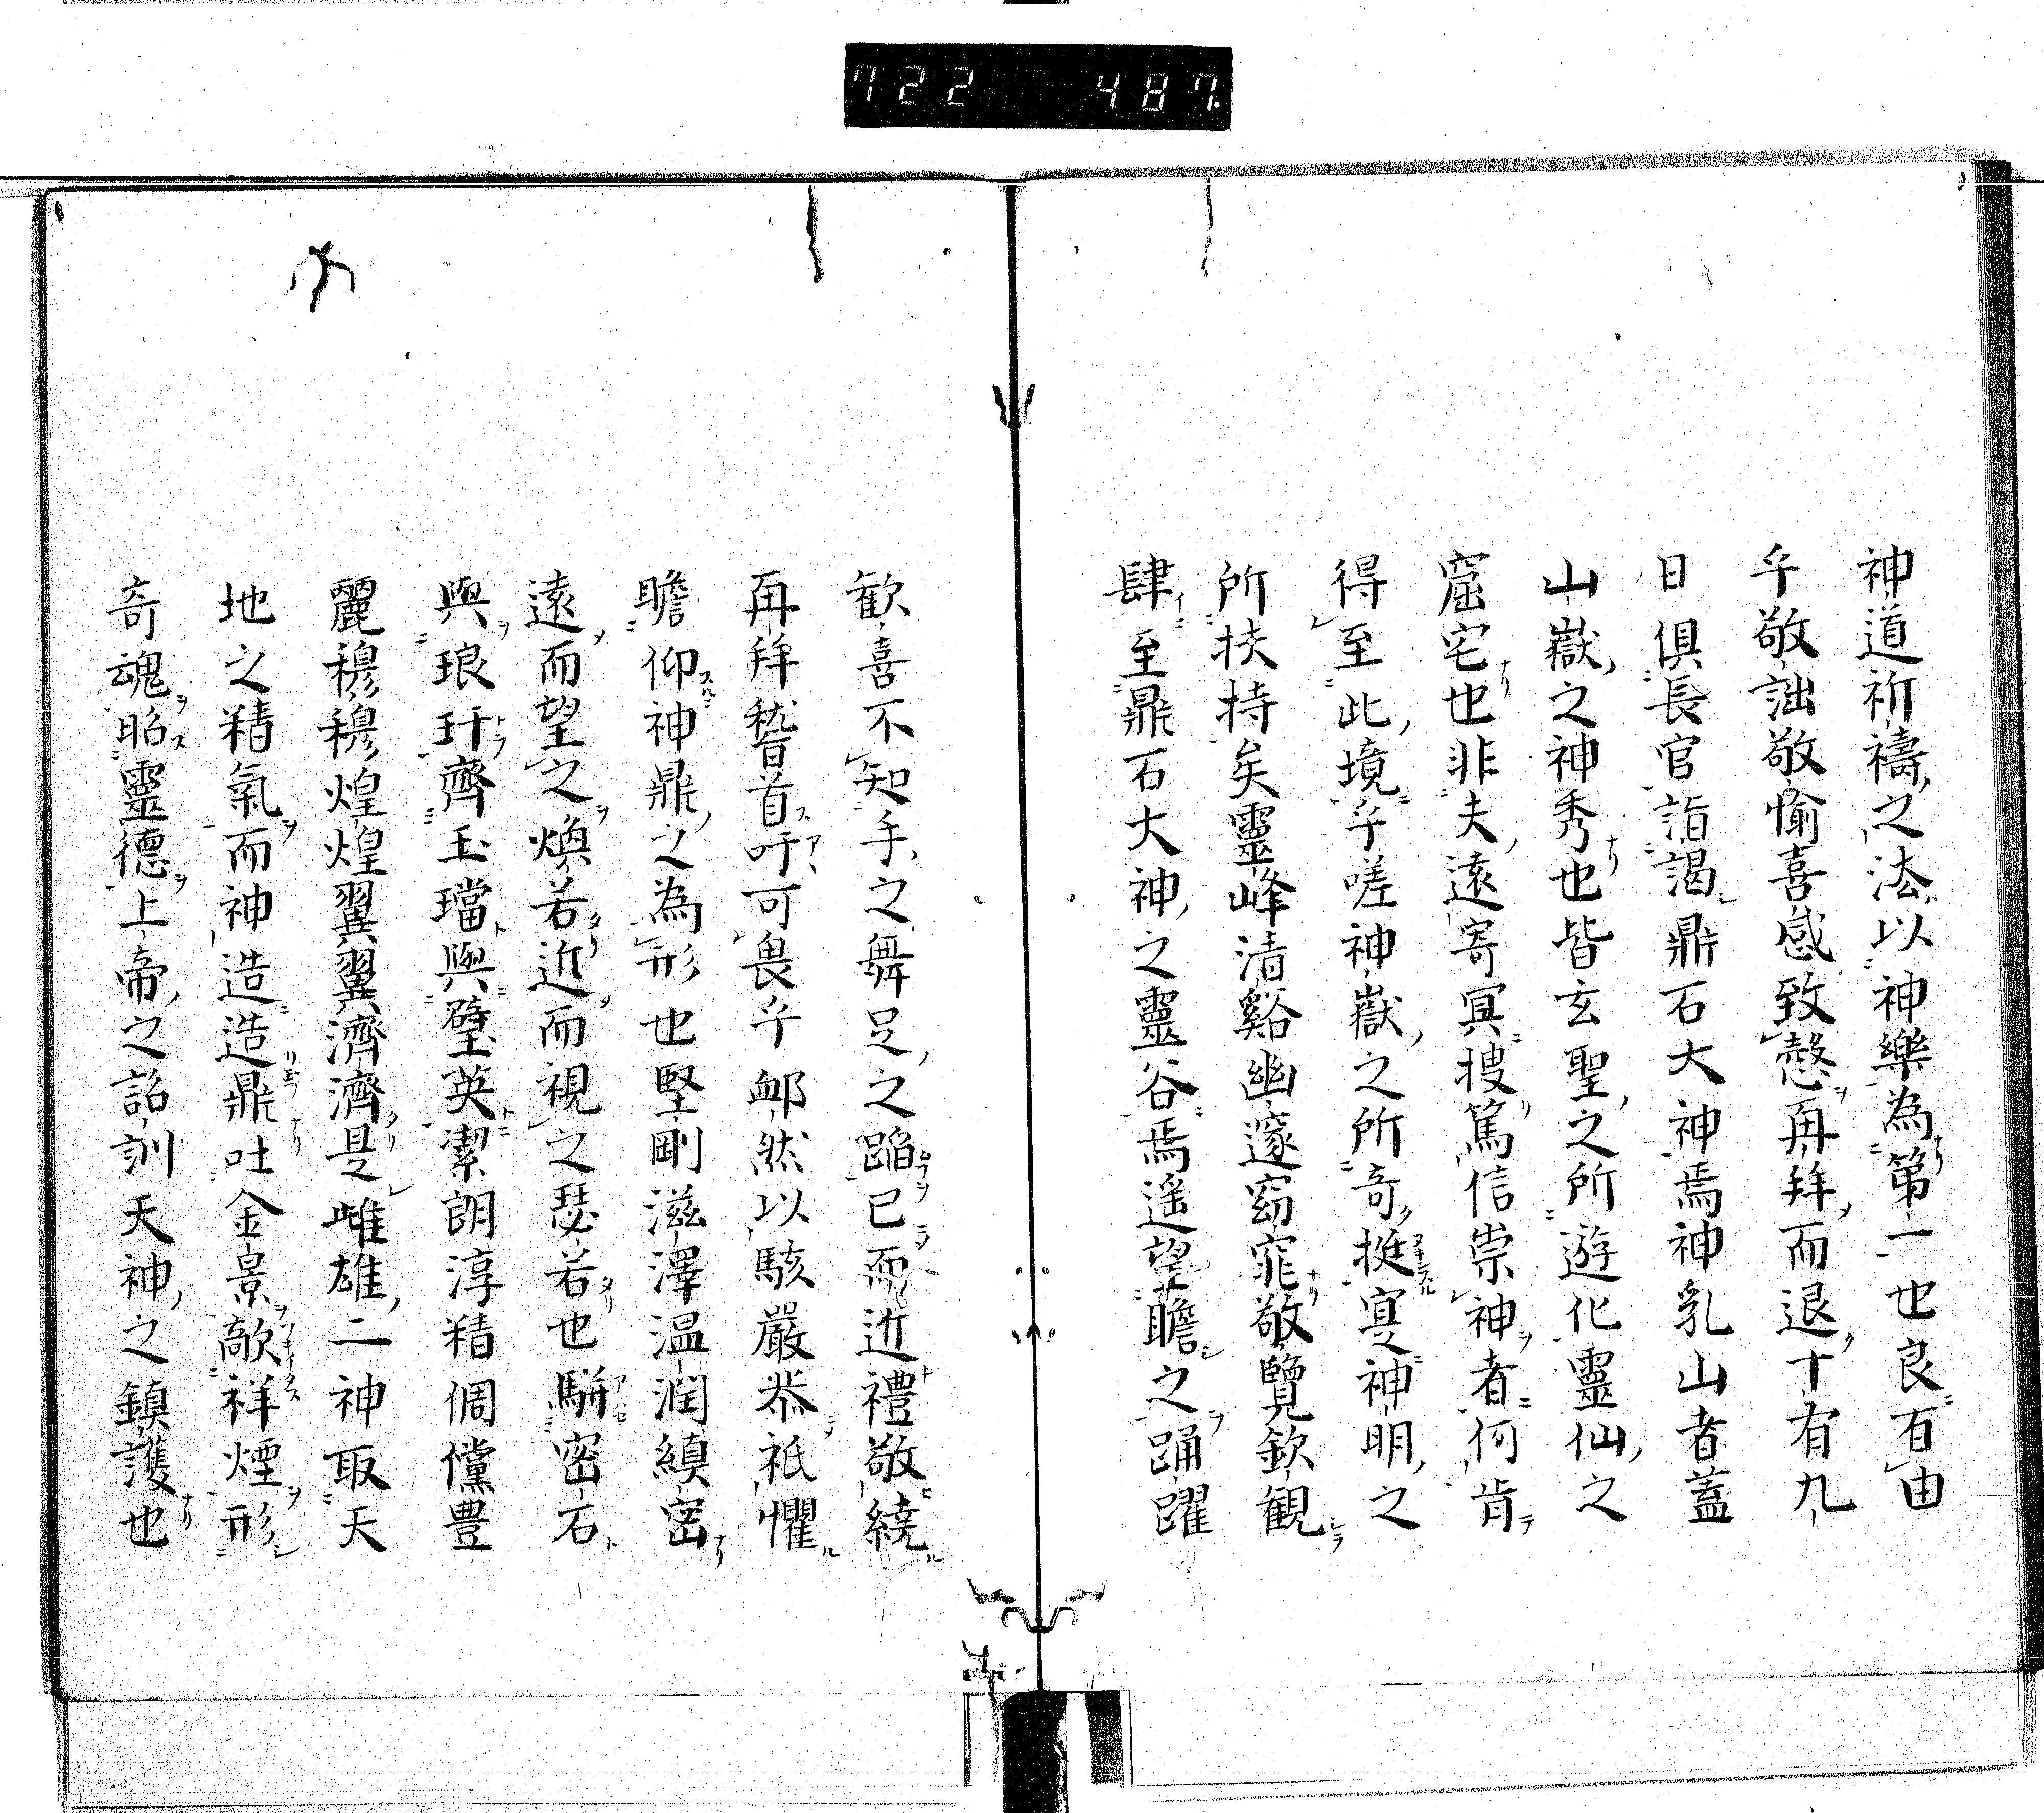 722 487.
神道祈禱之法以神樂為第一也良有由
乎敬詘敬愉喜感致慤再拜而退十有九
日俱長官詣謁鼎石大神焉神乳山者蓋
山嶽之神秀也皆玄聖之所遊化靈仙之
窟宅也非夫遠寄冥搜篤信崇神者何肯
得至此境乎嗟神嶽之所奇挺寔神明之
所扶持矣靈峰清谿幽邃窈窕敬覽欽観
肆至鼎石大神之靈谷焉遥望瞻之踊躍
歓喜不知手之舞足之蹈已而近禮敬繞
再拜稽首吁可畏乎邮然以駭嚴恭祇懼
瞻仰神鼎之為形也堅剛滋澤温潤縝密
遠而望之煥若近而視之瑟若也駢密石
與琅玕齊玉璫與璧英潔朗淳精倜儻豊
麗穆穆煌煌翼翼濟濟是雌雄二神取天
地之精氣而神造造鼎吐金景歊祥煙形
奇魂昭靈德上帝之詔訓天神之鎮護也